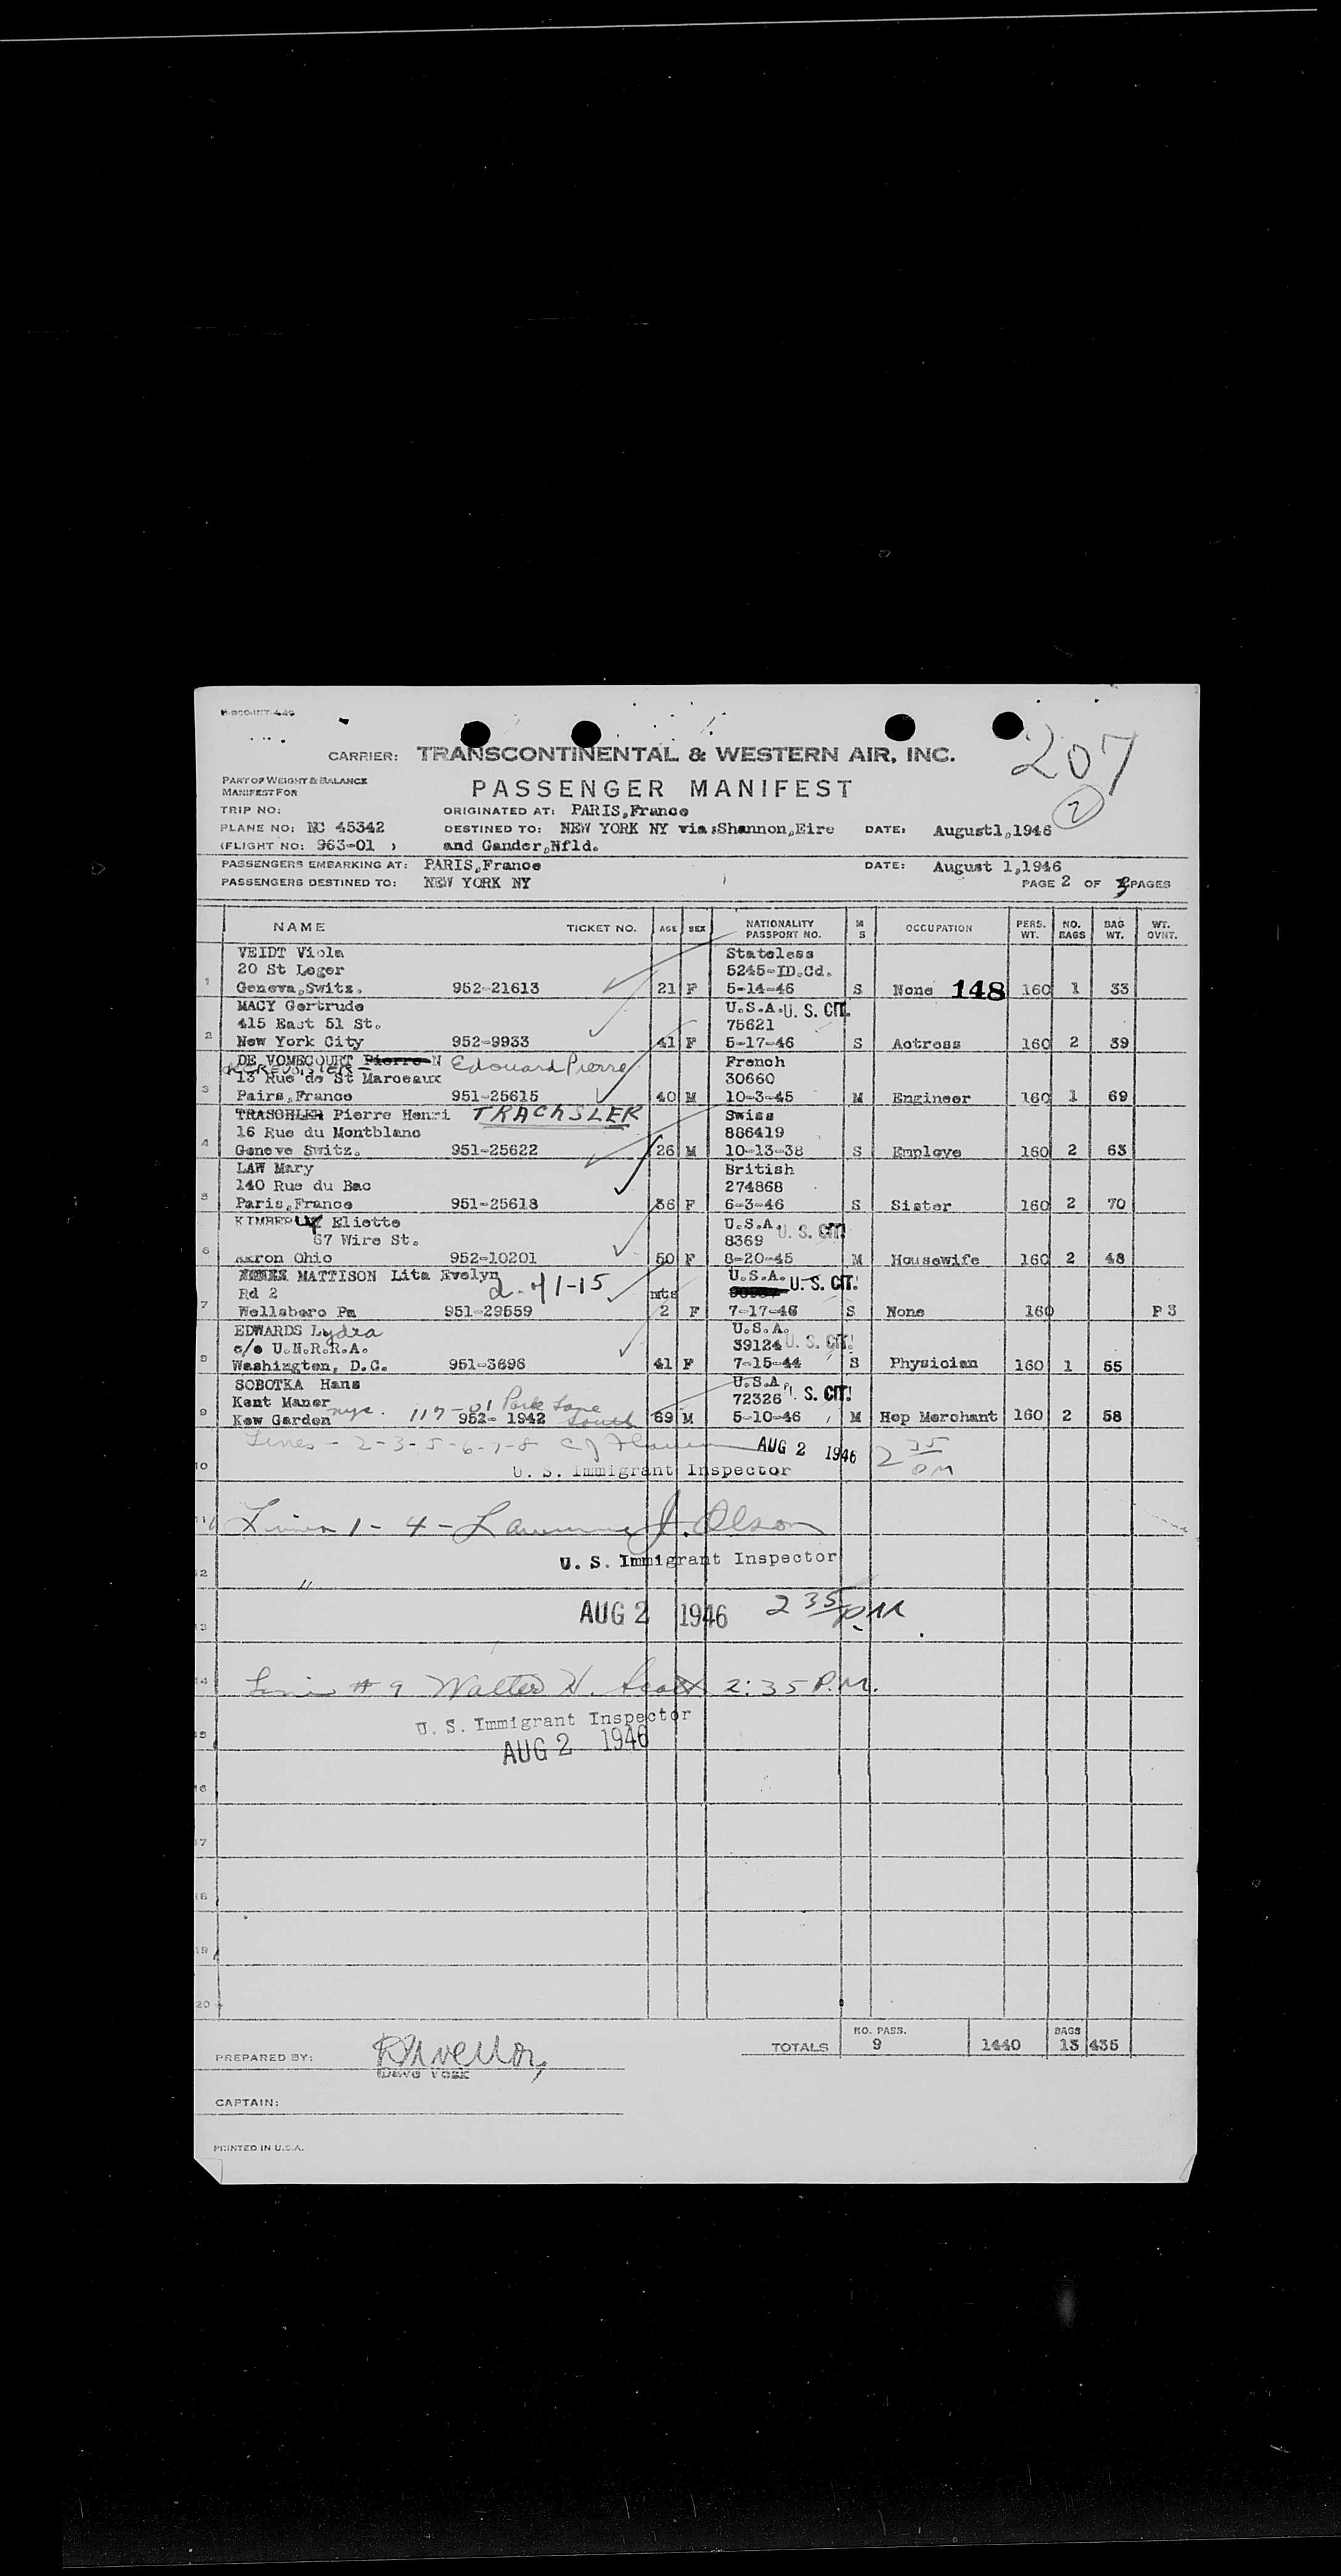 207
2
CARRIER: TRANSCONTINENTAL & WESTERN AIR, INC.
PART OF WEIGHT & BALANCE
MANIFEST FOR
PASSENGER MANIFEST
TRIP NO: ORIGINATED AT: PARIS,France
PLANE NO: NC 45342 DESTINED TO: NEW YORK NY via:Shannon,Eire DATE: August1,1946
(FLIGHT NO: 963-01 ) and Gander,Nfld.
PASSENGERS EMBARKING AT: PARIS,France DATE: August 1,1946
PASSENGERS DESTINED TO: NEW YORK NY PAGE 2 OF 3 PAGES
NAME TICKET NO. AGE SEX NATIONALITY PASSPORT NO. M S OCCUPATION PERS. WT. NO. BAGS BAG WT. WT. OVNT.
VEIDT Viola Stateless
20 St Leger 5245-ID.Cd.
1 Geneva,Switz. 952-21613 21 F 5-14-46 S None 148 160 1 33
MACY Gertrude U.S.A. U. S. CIT.
415 East 51 St. 75621
2 New York City 952-9933 41 F 5-17-46 S Actress 160 2 39
DE VOMECOURT Pierre N Edouard Pierre French
13 Rue de St Marceaux 30660
3 Pairs,France 951-25615 40 M 10-3-45 M Engineer 160 1 69
TRASCHLER Pierre Henri TRACHSLER Swiss
16 Rue du Montblanc 886419
4 Geneve Switz. 951-25622 26 M 10-13-38 S Employe 160 2 63
LAW Mary British
140 Rue du Bac 274868
5 Paris,France 951-25618 36 F 6-3-46 S Sister 160 2 70
KIMBERLY Eliette U.S.A. U. S. CIT!
67 Wire St. 8369
6 Akron Ohio 952-10201 50 F 8-20-45 M Housewife 160 2 48
MATTISON Lita Evelyn U.S.A. U. S. CIT!
Rd 2 mts
7 Wellsboro Pa 951-29559 2 F 7-17-46 S None 160 P 3
EDWARDS Lydia U.S.A.
c/o U.N.R.R.A. 39124 U. S. CIT!
8 Washington, D.C. 951-3696 41 F 7-15-44 S Physician 160 1 55
SOBOTKA Hans U.S.A.
Kent Maner nyc. 117-01 Park Lane 72326 U. S. CIT!
9 Kew Garden 952- 1942 South 69 M 5-10-46 M Hop Merchant 160 2 58
Lines - 2-3-5-6-7-8 AUG 2 1946 2 35 PM
10 U. S. Immigrant Inspector
11 Lines 1 - 4 - Lawrence J. Olson
U. S. Immigrant Inspector
12
AUG 2 1946 2 35 PM
13
14 Line # 9 Walter N. Scott 2:35 P.M.
U. S. Immigrant Inspector
15 AUG 2 1946
16
17
18
19
20
NO. PASS. BAGS
TOTALS 9 1440 13 435
PREPARED BY:
CAPTAIN:
PRINTED IN U.S.A.